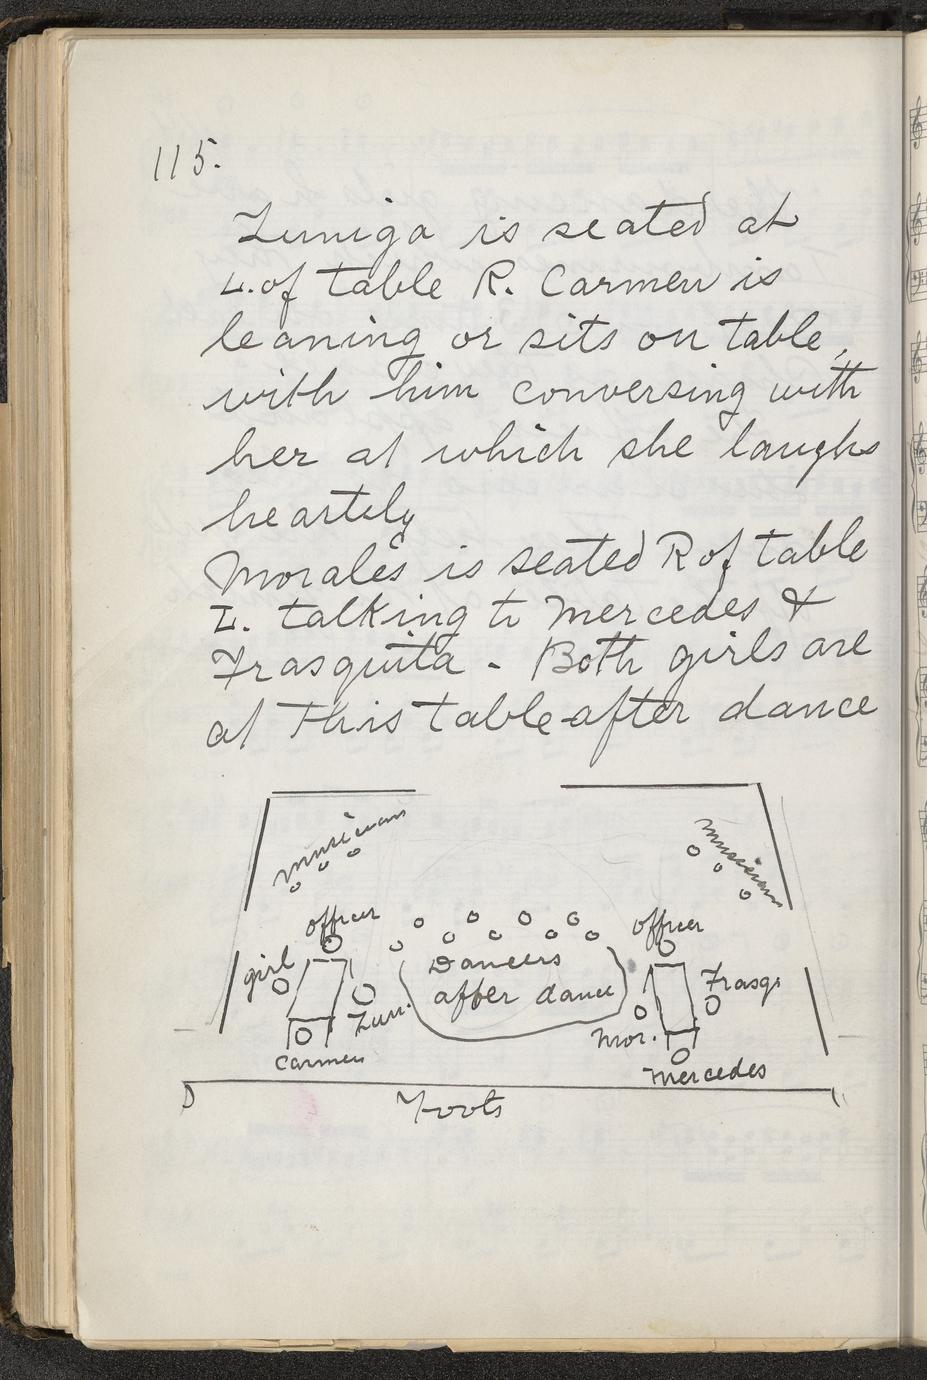 115.
Zuniga is seated at
L. of table R. Carmen is
leaning or sits on table,
with him conversing with
her at which she laughs
heartely
Morales is seated R of table
L. talking to Mercedes &
Frasquita - Both girls are
at this table after dance
musician
musician
officer
officer
girl
Dancers
Frasq.
after dance
Zun.
Mor.
Carmen
Mercedes
Foots